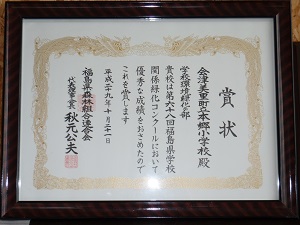 賞状
会津美里町立本郷小学校 殿
学校環境緑化部
貴校は第六八回福島県学校
関係緑化コンクールにおいて
優秀な成績をおさめたので
これを賞します
平成二十九年十月二十一日
福島県森林組合連合会
代表理事会長 秋元公夫